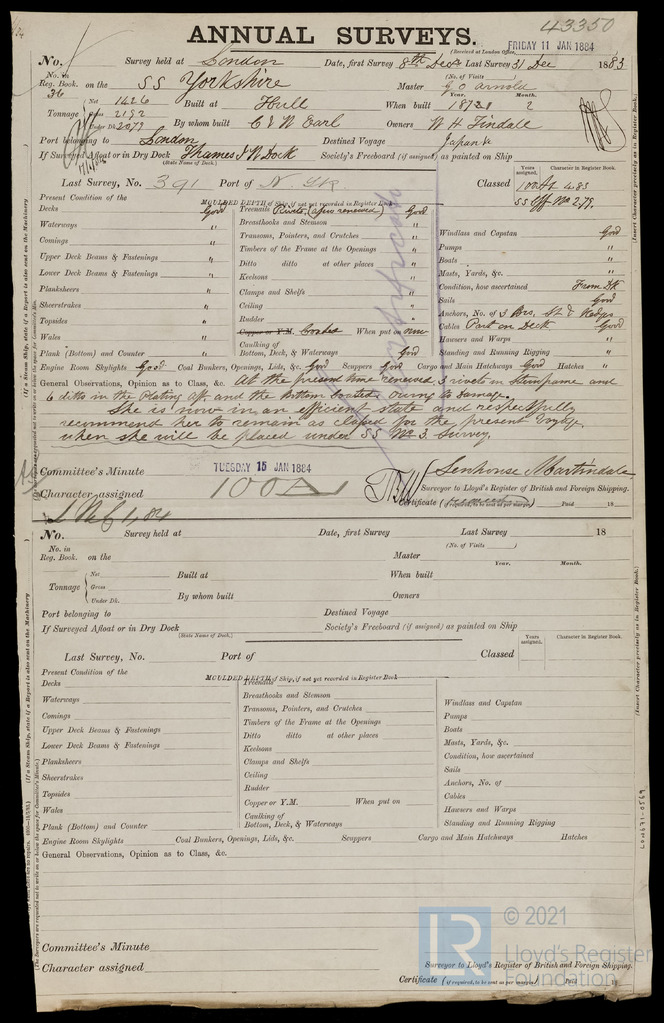 43350
ANNUAL SURVEYS.
(Received at London Office, FRIDAY 11 JAN 1884
No. Survey held at London Date, first Survey 8th Decr Last Survey 31 Dec 1883
No. in Reg. Book. 36 on the SS Yorkshire Master G O Arnold
(No. of Visits )
Tonnage Net 1426 Gross 2192 Under Dk. 2079
Built at Hull When built Year. Month. 2
By whom built C & W Earl Owners W H Tindall
Port belonging to London Destined Voyage Japan &c
If Surveyed Afloat or in Dry Dock Thames & W Dock Society's Freeboard (if assigned) as painted on Ship
(State Name of Dock.)
Last Survey, No. 391 Port of N Yk. Classed
Years assigned. Character in Register Book.
100A1 4.83
SS No 2.79
Present Condition of the
MOULDED DEPTH of Ship, if not yet recorded in Register Book
Decks Good
Waterways "
Comings "
Upper Deck Beams & Fastenings "
Lower Deck Beams & Fastenings "
Planksheers "
Sheerstrakes "
Topsides "
Wales "
Plank (Bottom) and Counter "
Treenails Rivets (a few renewed) Good
Breasthooks and Stemson "
Transoms, Pointers, and Crutches "
Timbers of the Frame at the Openings "
Ditto ditto at other places "
Keelsons "
Clamps and Shelfs "
Ceiling "
Rudder "
Copper or Y.M. Coated When put on now
Caulking of Bottom, Deck, & Waterways Good
Windlass and Capstan Good
Pumps "
Boats "
Masts, Yards, &c. "
Condition, how ascertained From Dk
Sails Good
Anchors, No. of 3 Brs. St & Kedges
Cables Part on Deck Good
Hawsers and Warps "
Standing and Running Rigging "
Engine Room Skylights Good Coal Bunkers, Openings, Lids, &c. Good Scuppers Good Cargo and Main Hatchways Good Hatches "
General Observations, Opinion as to Class, &c. At the present time renewed 3 rivets in Sternframe and
6 ditto in the Plating aft and the bottom Coated, owing to damage.
She is now in an efficient state and respectfully
recommend her to remain as classed for the present Voyage,
when she will be placed under SS No 3. Survey.
Committee's Minute TUESDAY 15 JAN 1884
Senhouse Martindale
Character assigned 100A1
Surveyor to Lloyd's Register of British and Foreign Shipping.
Certificate (if required, to be sent as per margin) Paid 18
L M C 1,84
No. Survey held at Date, first Survey Last Survey 18
No. in Reg. Book. on the Master
(No. of Visits )
Tonnage Net Gross Under Dk.
Built at When built Year. Month.
By whom built Owners
Port belonging to Destined Voyage
If Surveyed Afloat or in Dry Dock Society's Freeboard (if assigned) as painted on Ship
(State Name of Dock.)
Last Survey, No. Port of Classed
Years assigned. Character in Register Book.
Present Condition of the
MOULDED DEPTH of Ship, if not yet recorded in Register Book
Decks
Waterways
Comings
Upper Deck Beams & Fastenings
Lower Deck Beams & Fastenings
Planksheers
Sheerstrakes
Topsides
Wales
Plank (Bottom) and Counter
Treenails
Breasthooks and Stemson
Transoms, Pointers, and Crutches
Timbers of the Frame at the Openings
Ditto ditto at other places
Keelsons
Clamps and Shelfs
Ceiling
Rudder
Copper or Y.M. When put on
Caulking of Bottom, Deck, & Waterways
Windlass and Capstan
Pumps
Boats
Masts, Yards, &c.
Condition, how ascertained
Sails
Anchors, No. of
Cables
Hawsers and Warps
Standing and Running Rigging
Engine Room Skylights Coal Bunkers, Openings, Lids, &c. Scuppers Cargo and Main Hatchways Hatches
General Observations, Opinion as to Class, &c.
Committee's Minute
Character assigned
Surveyor to Lloyd's Register of British and Foreign Shipping.
Certificate (if required, to be sent as per margin) Paid 18
(If a Steam Ship, state if a Report is also sent on the Machinery
(Insert Character precisely as in Register Book.)
LON671-0569
LR © 2021
Lloyd's Register
Foundation